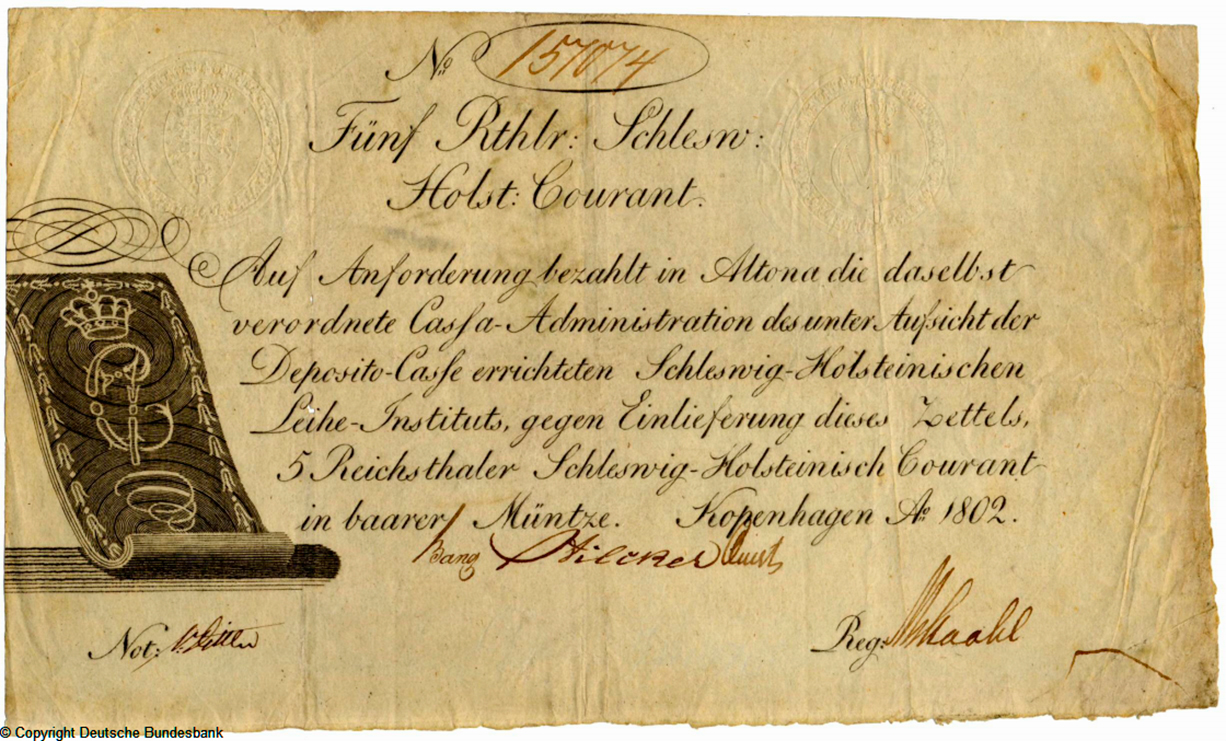 No 157074
Fünf Rthlr: Schlesw:
Holst: Courant.
Auf Anforderung bezahlt in Altona die daselbst
verordnete Cassa-Administration des unter Aufsicht der
Deposito-Casse errichteten Schleswig-Holsteinischen
Leihe-Instituts, gegen Einlieferung dieses Zettels,
5 Reichsthaler Schleswig-Holsteinisch Courant
in baarer Müntze. Kopenhagen Ao 1802.
Bang
Not:
Reg:
© Copyright Deutsche Bundesbank